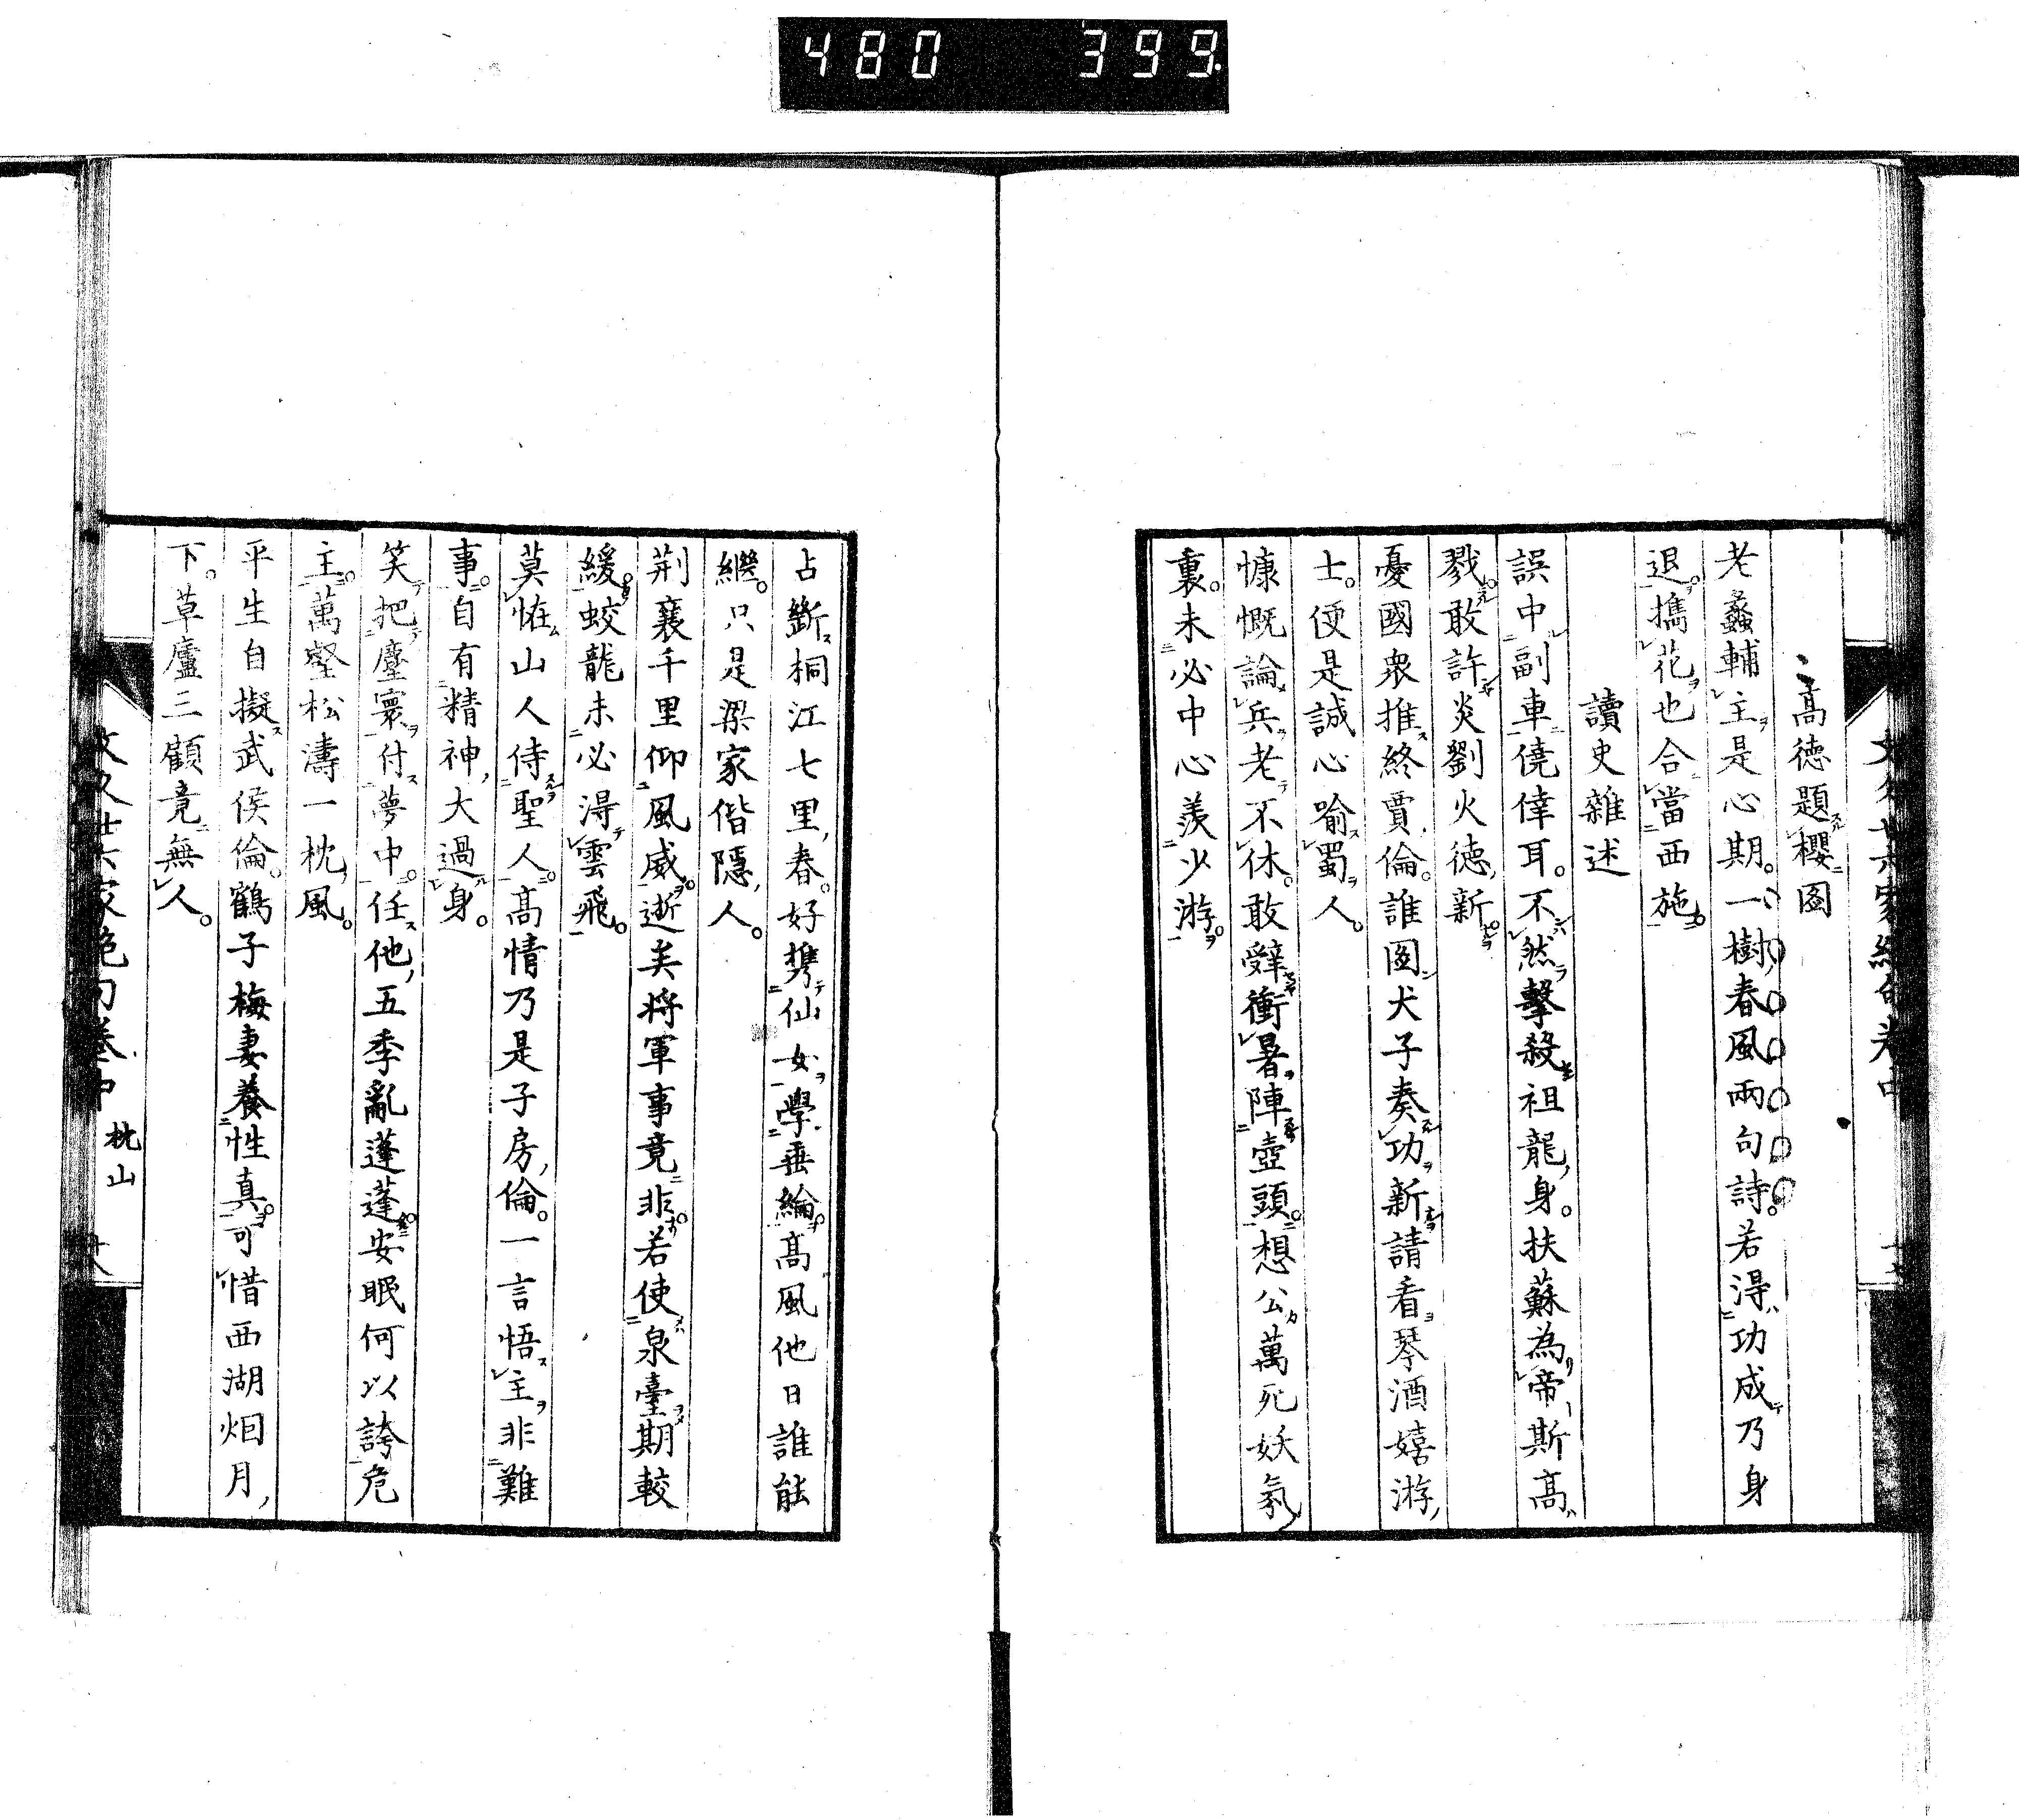 480 399
高德題櫻圖
老蠡輔主是心期。一樹春風兩句詩。若得功成乃身
退。攜花也合當西施
讀史雜述
誤中副車僥倖耳。不然擊殺祖龍身。扶蘇為帝斯高
戮。敢許炎劉火德新
憂國衆推終賈倫。誰圖犬子奏功新請看琴酒嬉游
士。便是誠心喻蜀人。
慷慨論兵老不休。敢辭衝暑陣壺頭。想公萬死妖氛
裏。未必中心羨少游。
占斷桐江七里春。好攜仙女學垂綸。高風他日誰能
繼。只是梁家偕隱人。
荊襄千里仰風威。逝矣將軍事竟非。若使泉臺期較
緩。蛟龍未必得雲飛。
莫恠山人侍聖人。高情乃是子房倫。一言悟主非難
事。自有精神大過身。
笑把塵寰付夢中。任他五季亂蓬蓬安眠何以誇危
主。萬壑松濤一枕風。
平生自擬武侯倫。鶴子梅妻養性真。可惜西湖烟月
下。草廬三顧竟無人。
文久廿六家絶句卷中 枕山